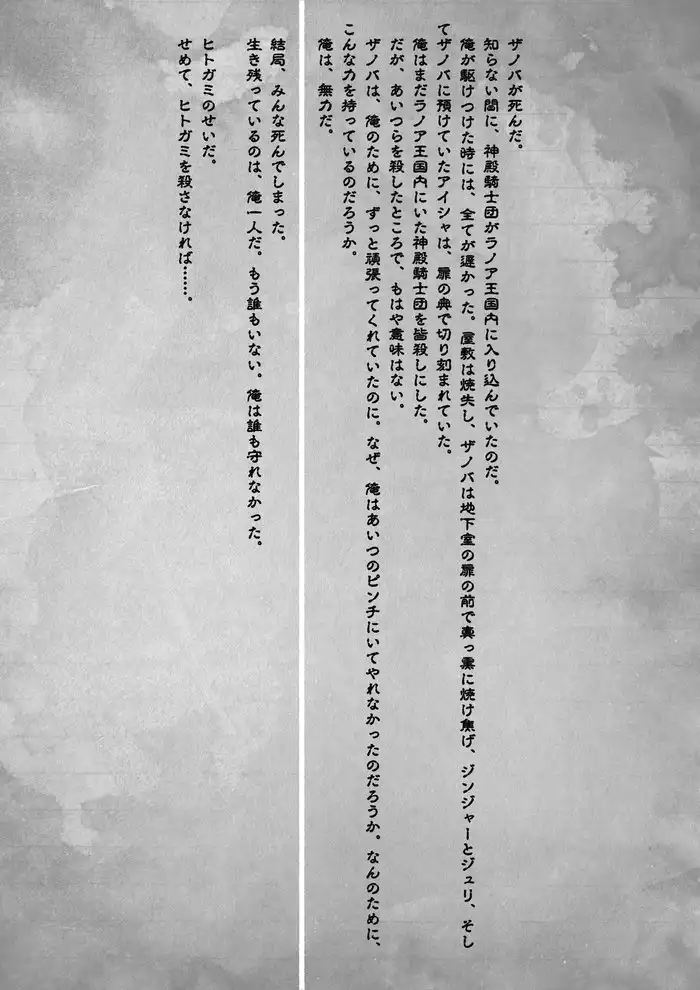 ザノバが死んだ。
知らない間に、神殿騎士団がラノア王国内に入り込んでいたのだ。
俺が駆けつけた時には、全てが遅かった。屋敷は焼失し、ザノバは地下室の扉の前で真っ黒に焼け焦げ、ジンジャーとジュリ、そし
てザノバに預けていたアイシャは、扉の奥で切り刻まれていた。
俺はまだラノア王国内にいた神殿騎士団を皆殺しにした。
だが、あいつらを殺したところで、もはや意味はない。
ザノバは、俺のために、ずっと頑張ってくれていたのに。なぜ、俺はあいつのピンチにいてやれなかったのだろうか。なんのために、
こんな力を持っているのだろうか。
俺は、無力だ。
結局、みんな死んでしまった。
生き残っているのは、俺一人だ。もう誰もいない。俺は誰も守れなかった。
ヒトガミのせいだ。
せめて、ヒトガミを殺さなければ……。